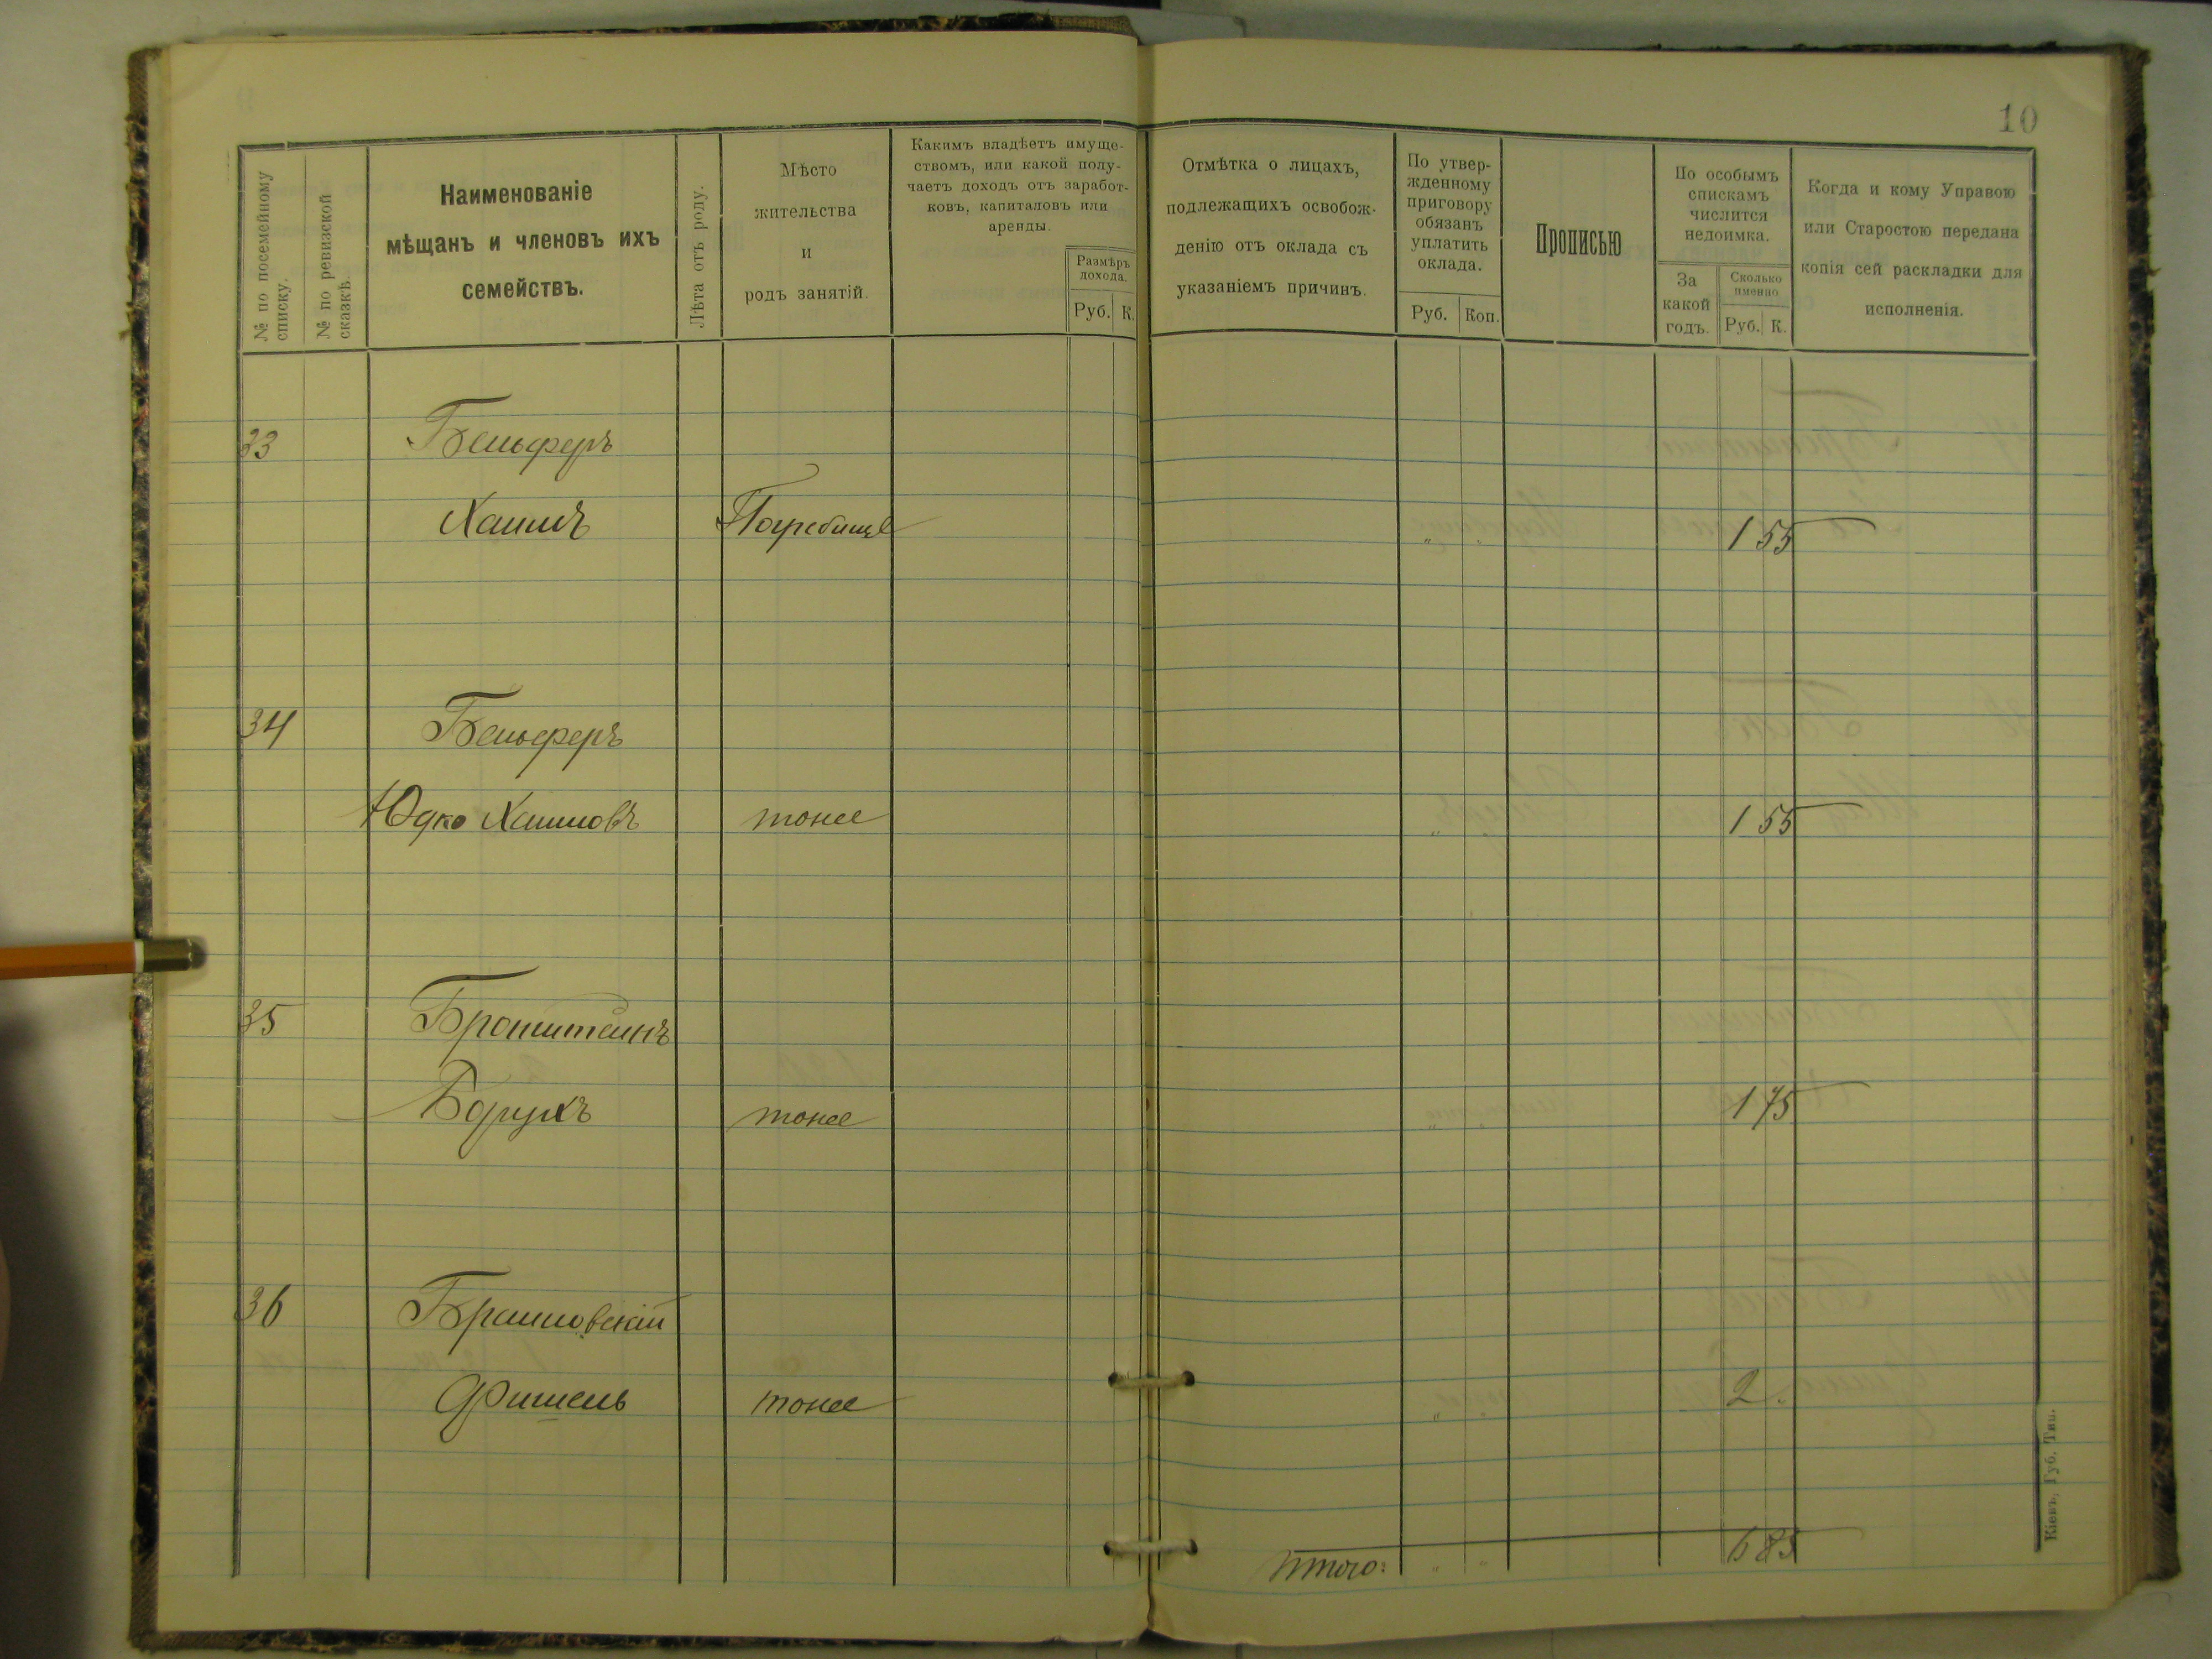 10
№ по посемейному списку.
№ по ревизской сказкѣ.
Наименованіе
мѣщанъ и членовъ ихъ
семействъ.
Лѣта отъ роду.
Мѣсто
жительства
и
родъ занятій.
Какимъ владѣетъ имуще-
ствомъ, или какой полу-
чаетъ доходъ отъ заработ-
ковъ, капиталовъ или
аренды.
Размѣръ
дохода.
Руб. К.
Отмѣтка о лицахъ,
подлежащихъ освобож-
денію отъ оклада съ
указаніемъ причинъ.
По утвер-
жденному
приговору
обязанъ
уплатить
оклада.
Руб. Коп.
Прописью
По особымъ
спискамъ
числится
недоимка.
За
какой
годъ.
Сколько
именно
Руб. К.
Когда и кому Управою
или Старостою передана
копія сей раскладки для
исполненія.
33 Бельферъ
Хаимъ Погребище " " 1 55
34 Бельферъ
Юдко Хаимовъ тоже " 1 55
35 Бронштейнъ
Борухъ тоже " " 1 75
36 Браиловскій
Фишель тоже " 2 .
Итого: " " 6 85
Кіевъ, Губ. Тип.